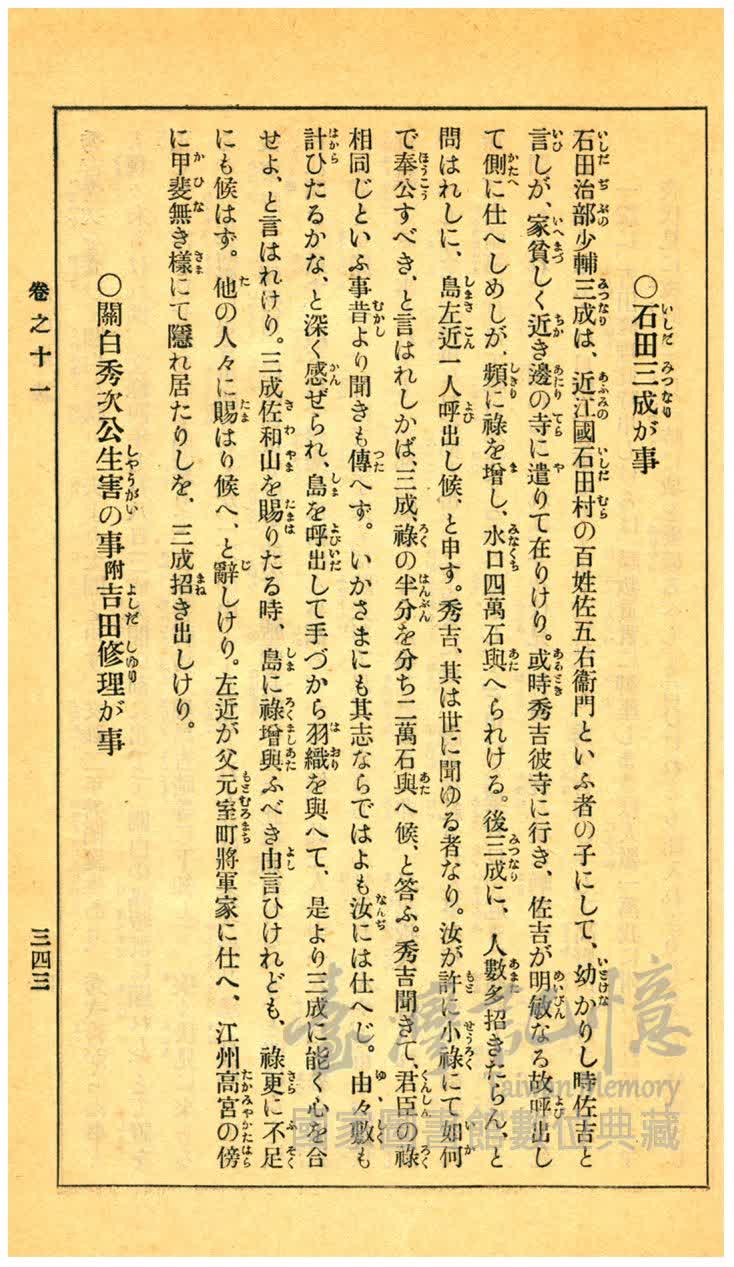 ○石田三成が事
石田治部少輔三成は、近江國石田村の百姓佐五右衞門といふ者の子にして、幼かりし時佐吉と
言しが、家貧しく近き邊の寺に遣りて在りけり。或時秀吉彼寺に行き、佐吉が明敏なる故呼出し
て側に仕へしめしが、頻に祿を增し、水口四萬石與へられける。後三成に、人數多招きたらん、と
問はれしに、島左近一人呼出し候、と申す。秀吉、其は世に聞ゆる者なり。汝が許に小祿にて如何
で奉公すべき、と言はれしかば、三成、祿の半分を分ち二萬石與へ候、と答ふ。秀吉聞きて、君臣の祿
相同じといふ事昔より聞きも傳へず。いかさまにも其志ならではよも汝には仕へじ。由々敷も
計ひたるかな、と深く感ぜられ、島を呼出して手づから羽織を與へて、是より三成に能く心を合
せよ、と言はれけり。三成佐和山を賜りたる時、島に祿增與ふべき由言ひけれども、祿更に不足
にも候はず。他の人々に賜はり候へ、と辭しけり。左近が父元室町將軍家に仕へ、江州高宮の傍
に甲斐無き樣にて隱れ居たりしを、三成招き出しけり。
○關白秀次公生害の事附吉田修理が事
卷之十一
三四三
臺灣記憶
Taiwan Memory
國家圖書館數位典藏